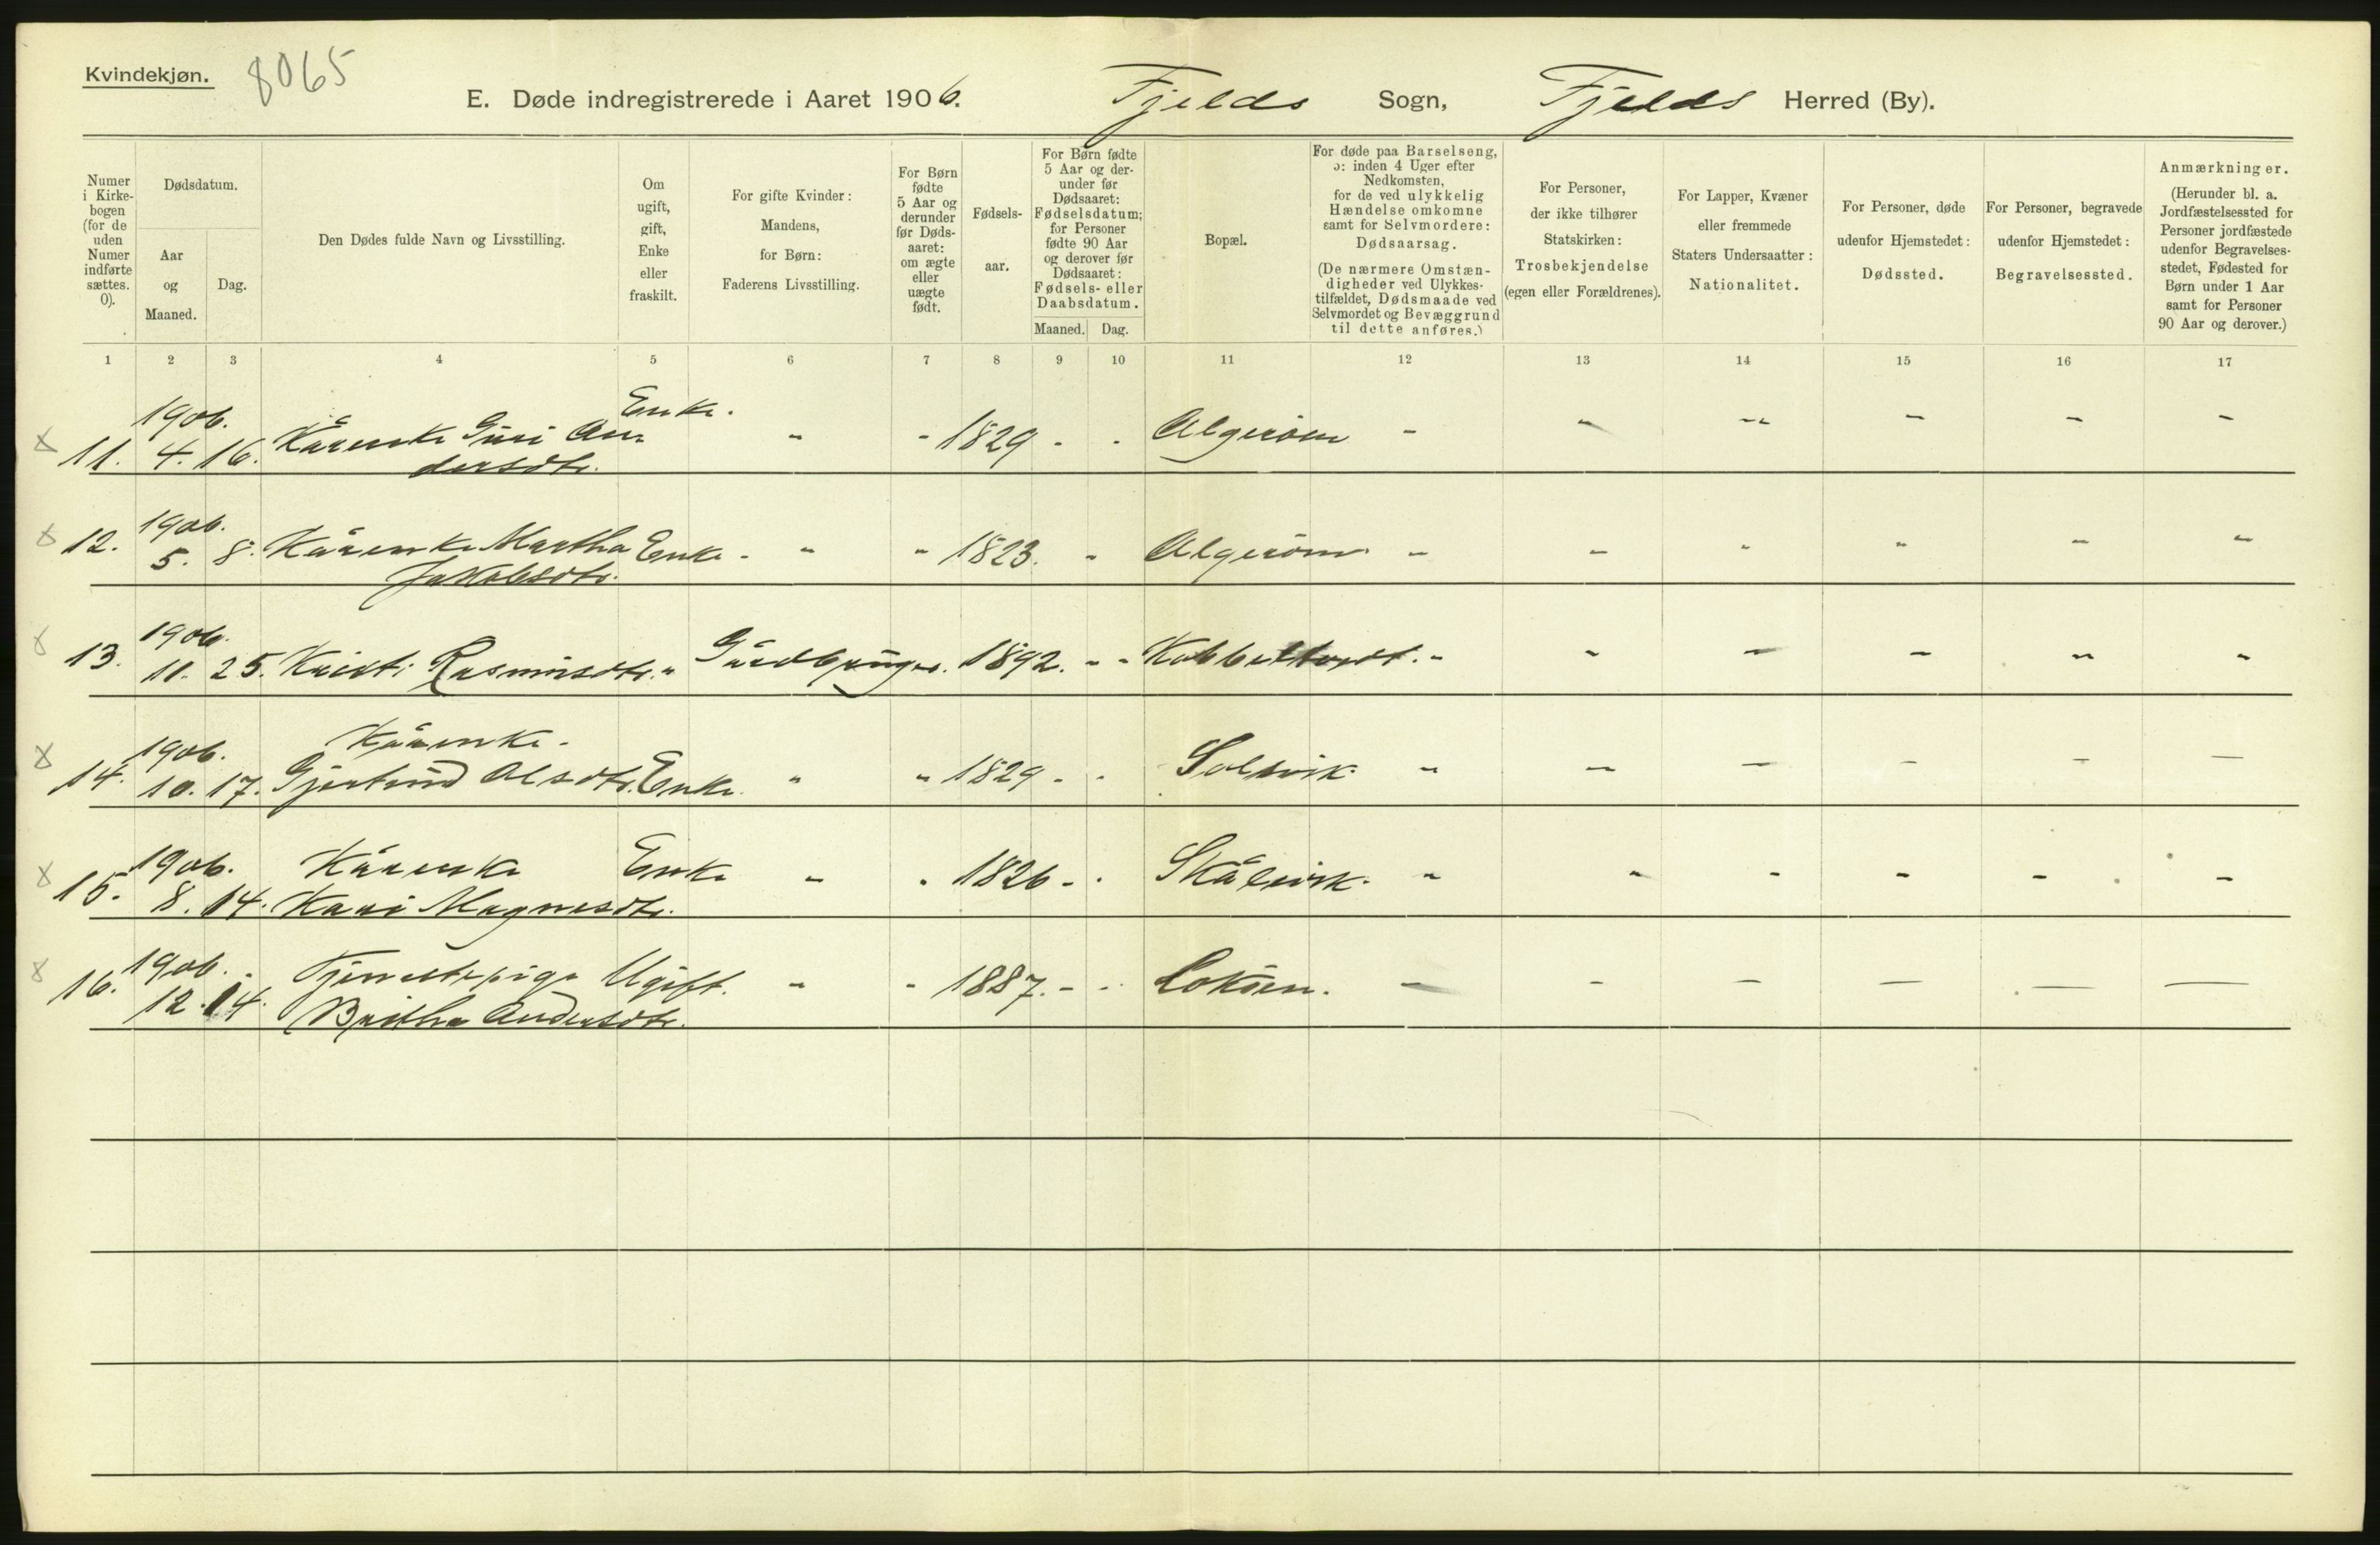 Kvindekjøn.
8065
E. Døde indregistrerede i Aaret 1906.
Fjelds Sogn, Fjelds Herred (By).
Numer i Kirke-bogen (for de uden Numer indførte sættes. 0).
Dødsdatum.
Aar og Maaned.
Dag.
Den Dødes fulde Navn og Livsstilling.
Om ugift, gift, Enke eller fraskilt.
For gifte Kvinder: Mandens, for Børn: Faderens Livsstilling.
For Børn fødte 5 Aar og derunder før Døds-aaret: om ægte eller uægte født.
Fødsels-aar.
For Børn fødte 5 Aar og der-under før Dødsaaret: Fødselsdatum; for Personer fødte 90 Aar og derover før Dødsaaret: Fødsels- eller Daabsdatum.
Maaned. Dag.
Bopæl.
For døde paa Barselseng, ɔ: inden 4 Uger efter Nedkomsten, for de ved ulykkelig Hændelse omkomne samt for Selvmordere: Dødsaarsag.
(De nærmere Omstæn-digheder ved Ulykkes-tilfældet, Dødsmaade ved Selvmordet og Bevæggrund til dette anføres.)
For Personer, der ikke tilhører Statskirken: Trosbekjendelse (egen eller Forældrenes).
For Lapper, Kvæner eller fremmede Staters Undersaatter: Nationalitet.
For Personer, døde udenfor Hjemstedet: Dødssted.
For Personer, begravede udenfor Hjemstedet: Begravelsessted.
Anmærkninger.
(Herunder bl. a. Jordfæstelsessted for Personer jordfæstede udenfor Begravelses-stedet, Fødested for Børn under 1 Aar samt for Personer 90 Aar og derover.)
1 2 3 4 5 6 7 8 9 10 11 12 13 14 15 16 17
1906. Enke.
11. 4. 16. Kårenke Guri An- " - 1829 - - Algerøen - - - - - -
dersdtr.
1906.
12. 5. 8. Kårenke Martha Enke - " " 1823. - Algerøen - - - - - -
Jakobsdtr.
1906.
13. 11. 25. Kristi Rasmusdtr. " Gårdbruger. 1892. - - - - - - - -
1906. Kårenke.
14. 10. 17. Gjertrud Olsdtr. Enke. " " 1829 - - Solsvik - - - - - -
1906. Kårenke Enke - - 1826 - - Skålevik. - - - - - -
15. 8. 14. Kari Magnesdtr.
1906. Tjenestepige Ugift. - - 1887. - - Loksen. - - - - - -
16. 12. 14. Britha Andersdtr.